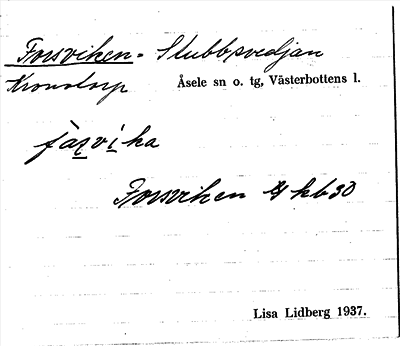 Forsviken - Stubbsvedjan
Kronotorp Åsele sn o. tg, Västerbottens l.
fàs̱vi̱ka
Forsviken Gkb 30
Lisa Lidberg 1937.